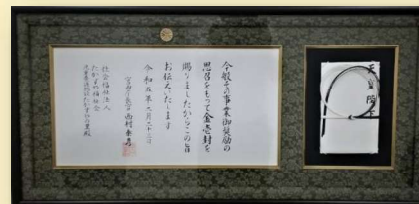 天皇陛下
今般その事業御奨励の
思召をもって金壱封を
賜りましたからこの旨
お伝えいたします
令和 年 月二十三日
宮内庁長官 西村泰彦
社会福祉法人
たかずや福祉会
児童養護施設たかずやの里殿